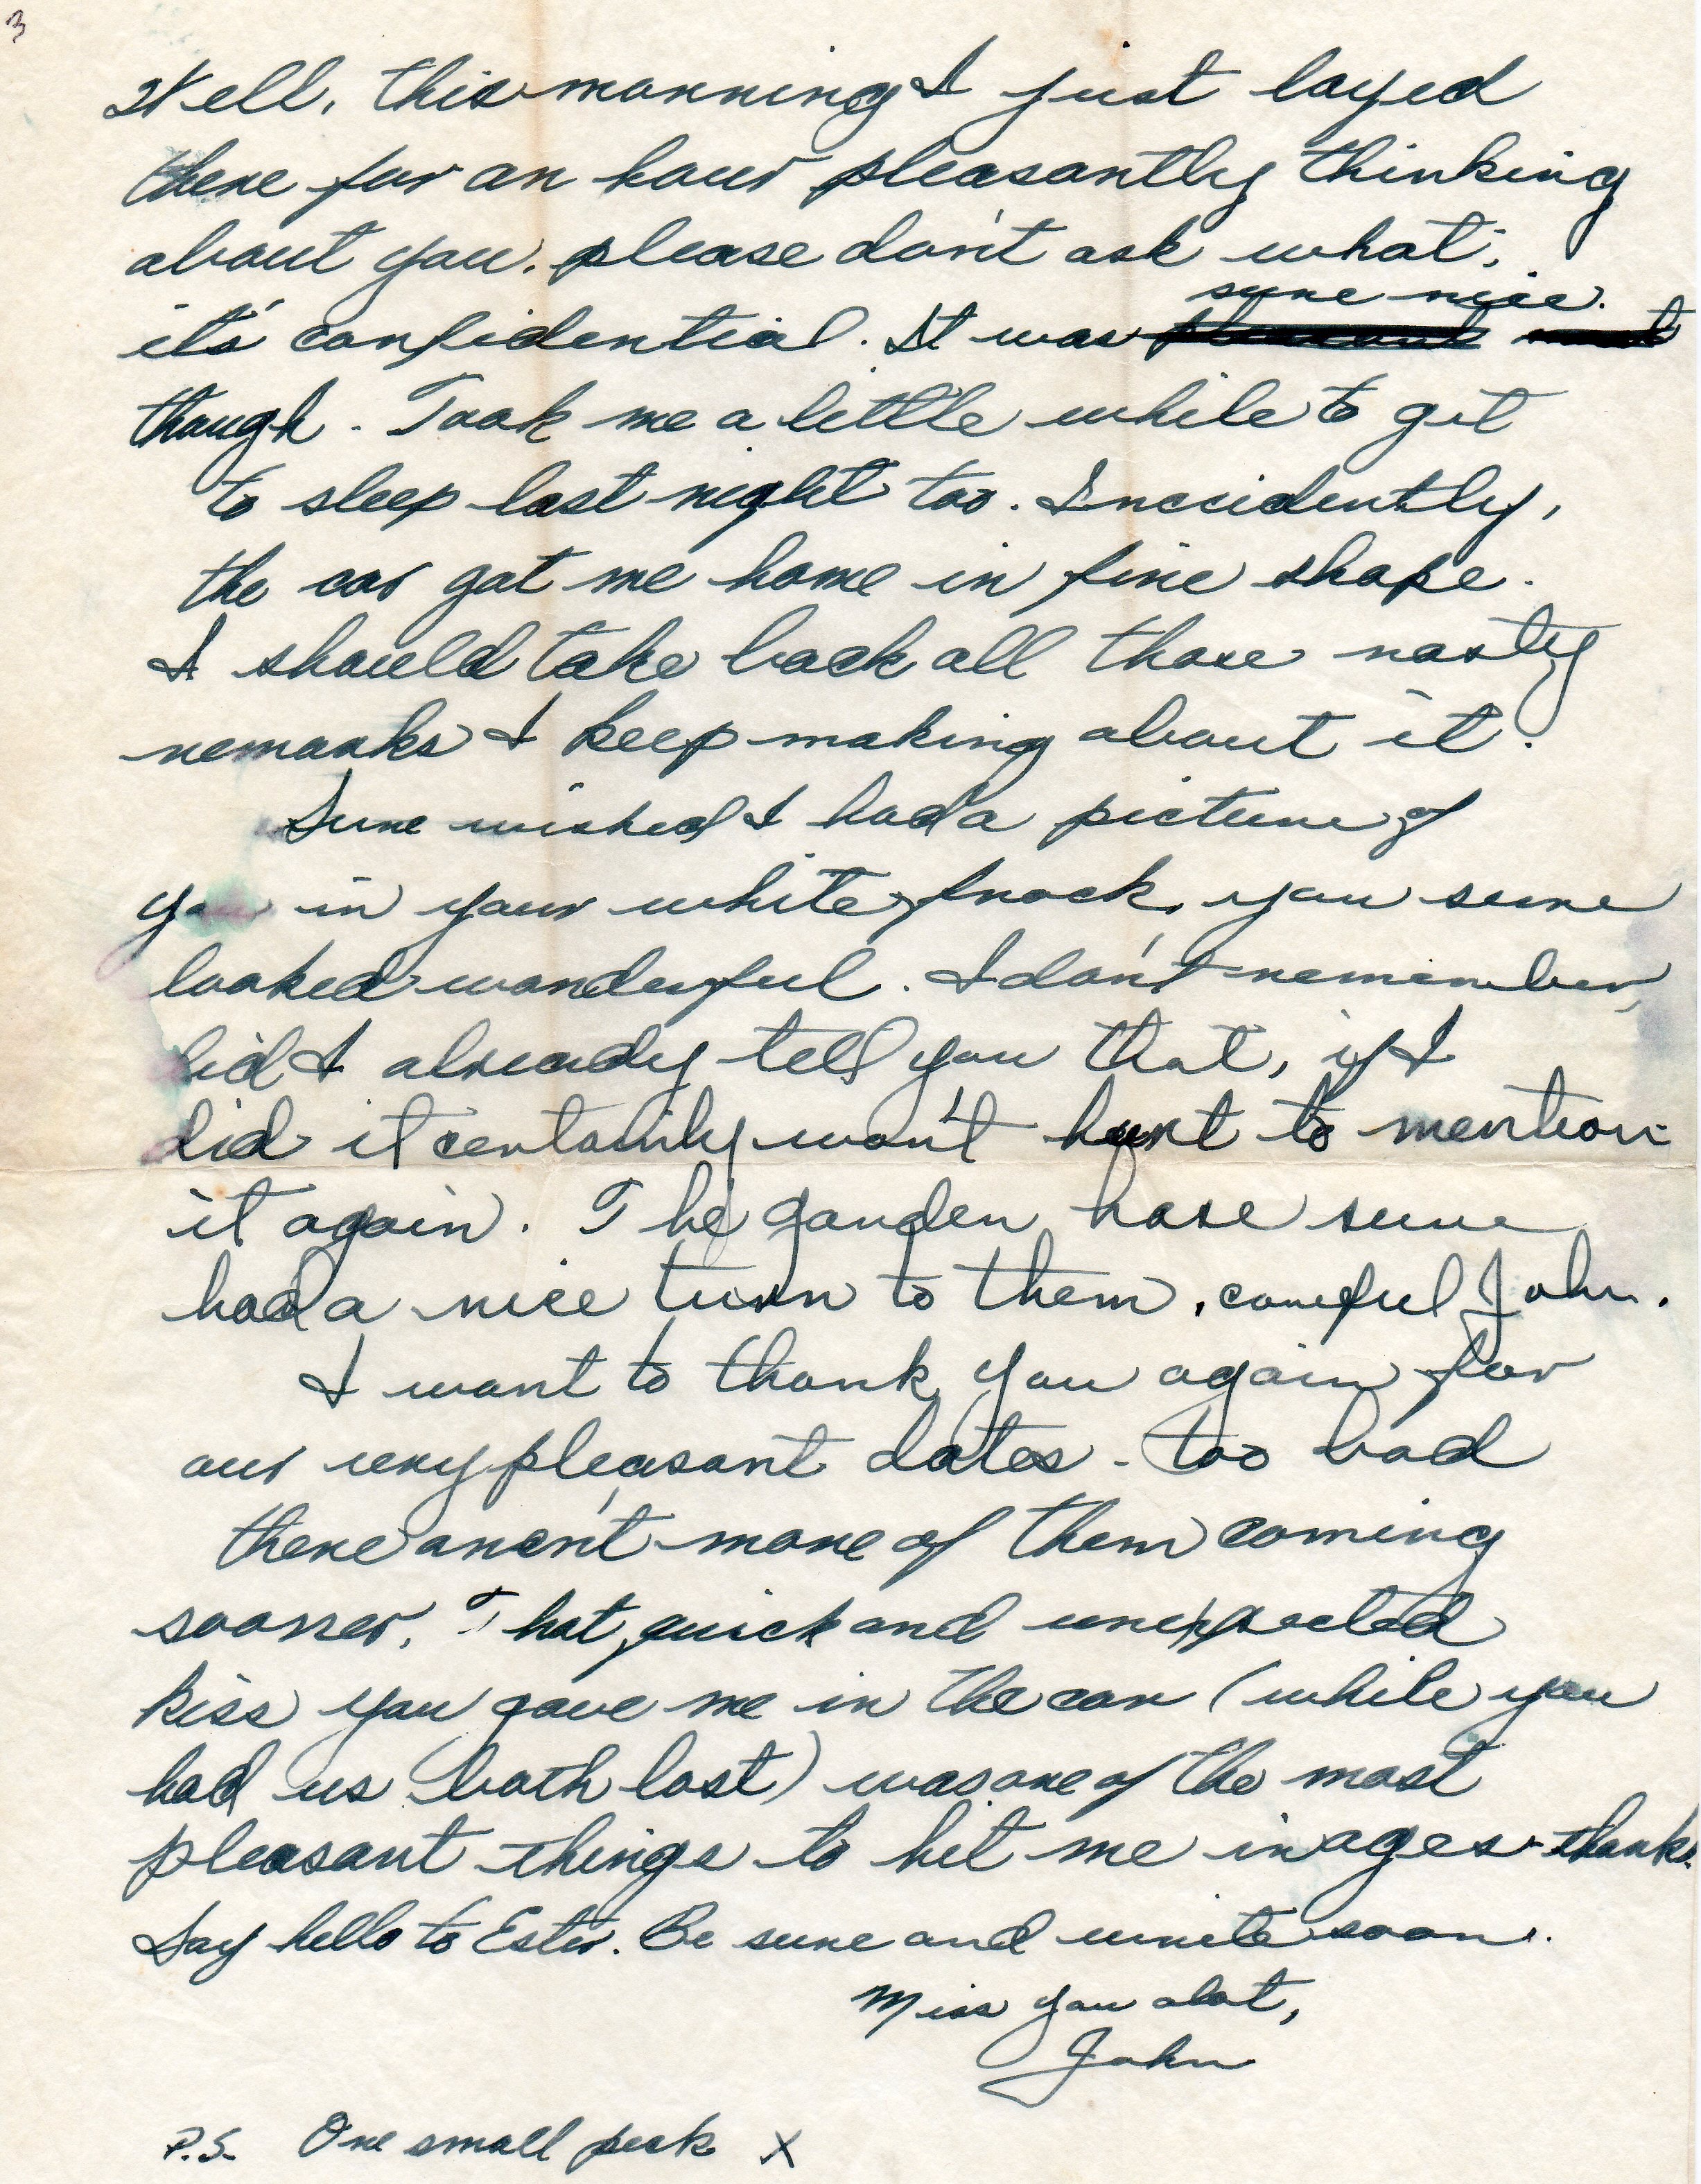 3
Well, this morning I just layed
there for an hour pleasantly thinking
about you. please don't ask what;
sure nice.
it's confidential. It was
though. Took me a little while to get
to sleep last night too. Inccidently,
the car got me home in fine shape.
I should take back all those nasty
remarks I keep making about it.
Sure wished I had a picture of
you in your white frock, you sure
looked wonderful. I don't remember,
did I already tell you that, if I
did it certainly won't hurt to mention
it again. The garden hose sure
had a nice turn to them, careful John.
I want to thank you again for
our very pleasant dates - too bad
there aren't more of them coming
sooner. That quick and unexpected
kiss you gave me in the car (while you
had us both lost) was one of the most
pleasant things to hit me in ages - thanks.
Say hello to Ester. Be sure and write soon.
Miss you alot,
John
P.S. One small peck X